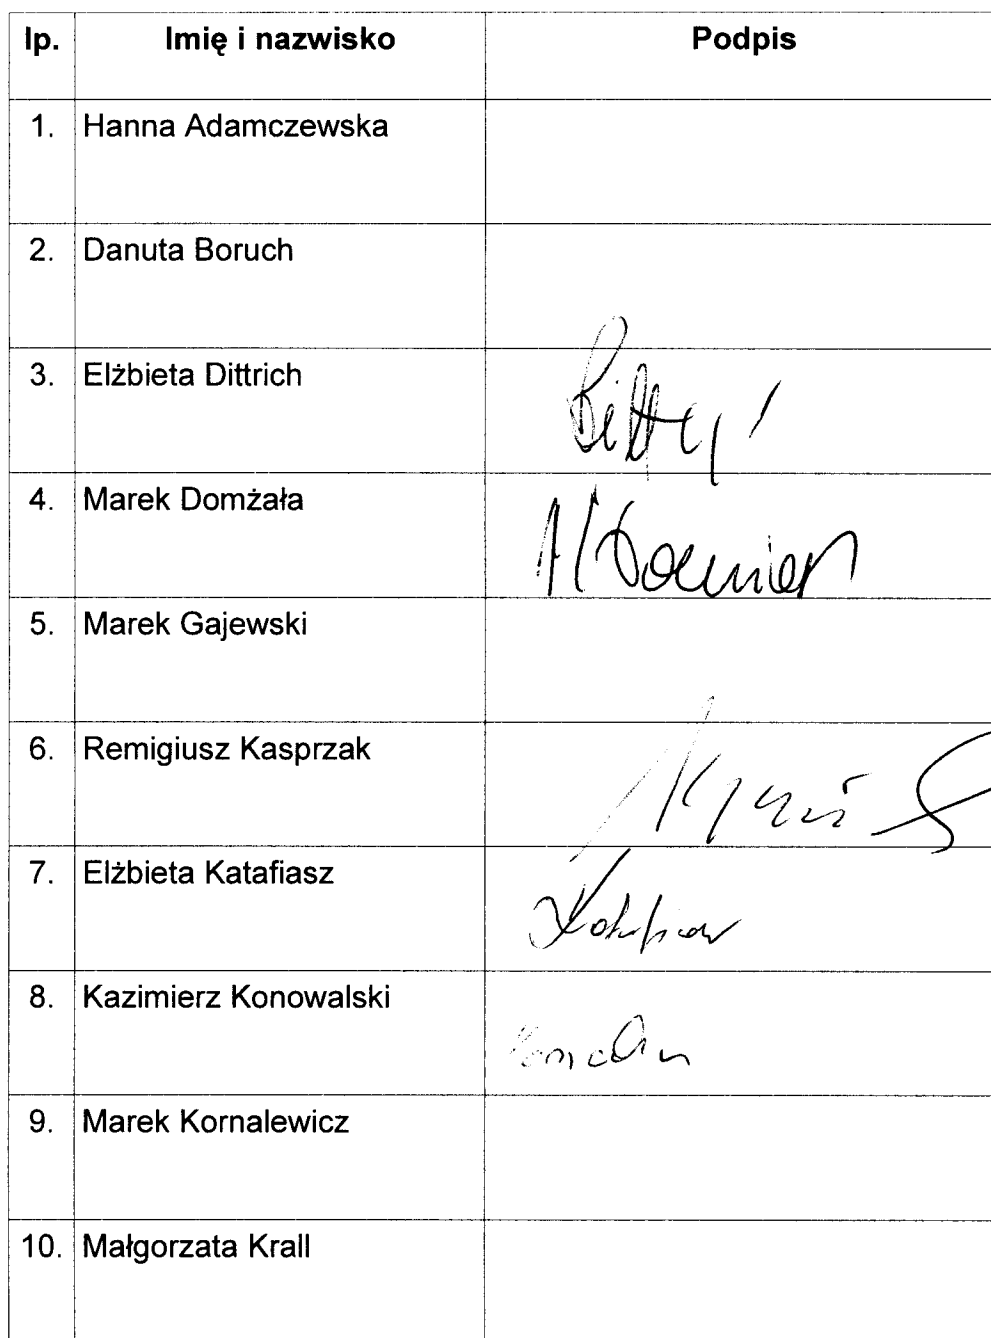 lp. Imię i nazwisko Podpis
1. Hanna Adamczewska
2. Danuta Boruch
3. Elżbieta Dittrich
4. Marek Domżała
5. Marek Gajewski
6. Remigiusz Kasprzak
7. Elżbieta Katafiasz
8. Kazimierz Konowalski
9. Marek Kornalewicz
10. Małgorzata Krall